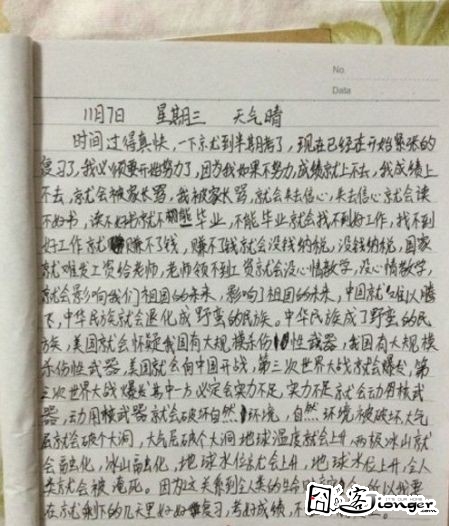 No.
Data
11月7日 星期三 天气晴
时间过得真快,一下就到半期考了,现在已经在开始紧张的
复习了,我必须要开始努力了,因为我如果不努力,成绩就上不去,我成绩上
不去,就会被家长骂,我被家长骂,就会失去信心,失去信心就会读
不好书,读不好书就不能毕业,不能毕业就会找不到好工作,找不到
好工作就赚不了钱,赚不了钱就会没钱纳税,没钱纳税,国家
就难发工资给老师,老师领不到工资就会没心情教学,没心情教学,
就会影响我们祖国的未来,影响了祖国的未来,中国就难以腾
飞,中华民族就会退化成野蛮的民族。中华民族成了野蛮的民
族,美国就会怀疑我国有大规模杀伤性武器,我国有大规模
杀伤性武器,美国就会向中国开战,第三次世界大战就会爆发,第
三次世界大战爆发其中一方必定会实力不足,实力不足就会动用核武
器,动用核武器就会破坏自然环境,自然环境被破坏,大气
层就会破个大洞,大气层破个大洞地球温度就会上升,两极冰山就
会融化,冰山融化,地球水位就会上升,地球水位上升,全人
类就会被淹死。因为这关系到全人类的生命安全,所以我要
在就剩下的几天里好好复习,考好成绩,不
囧客
Jionger.com